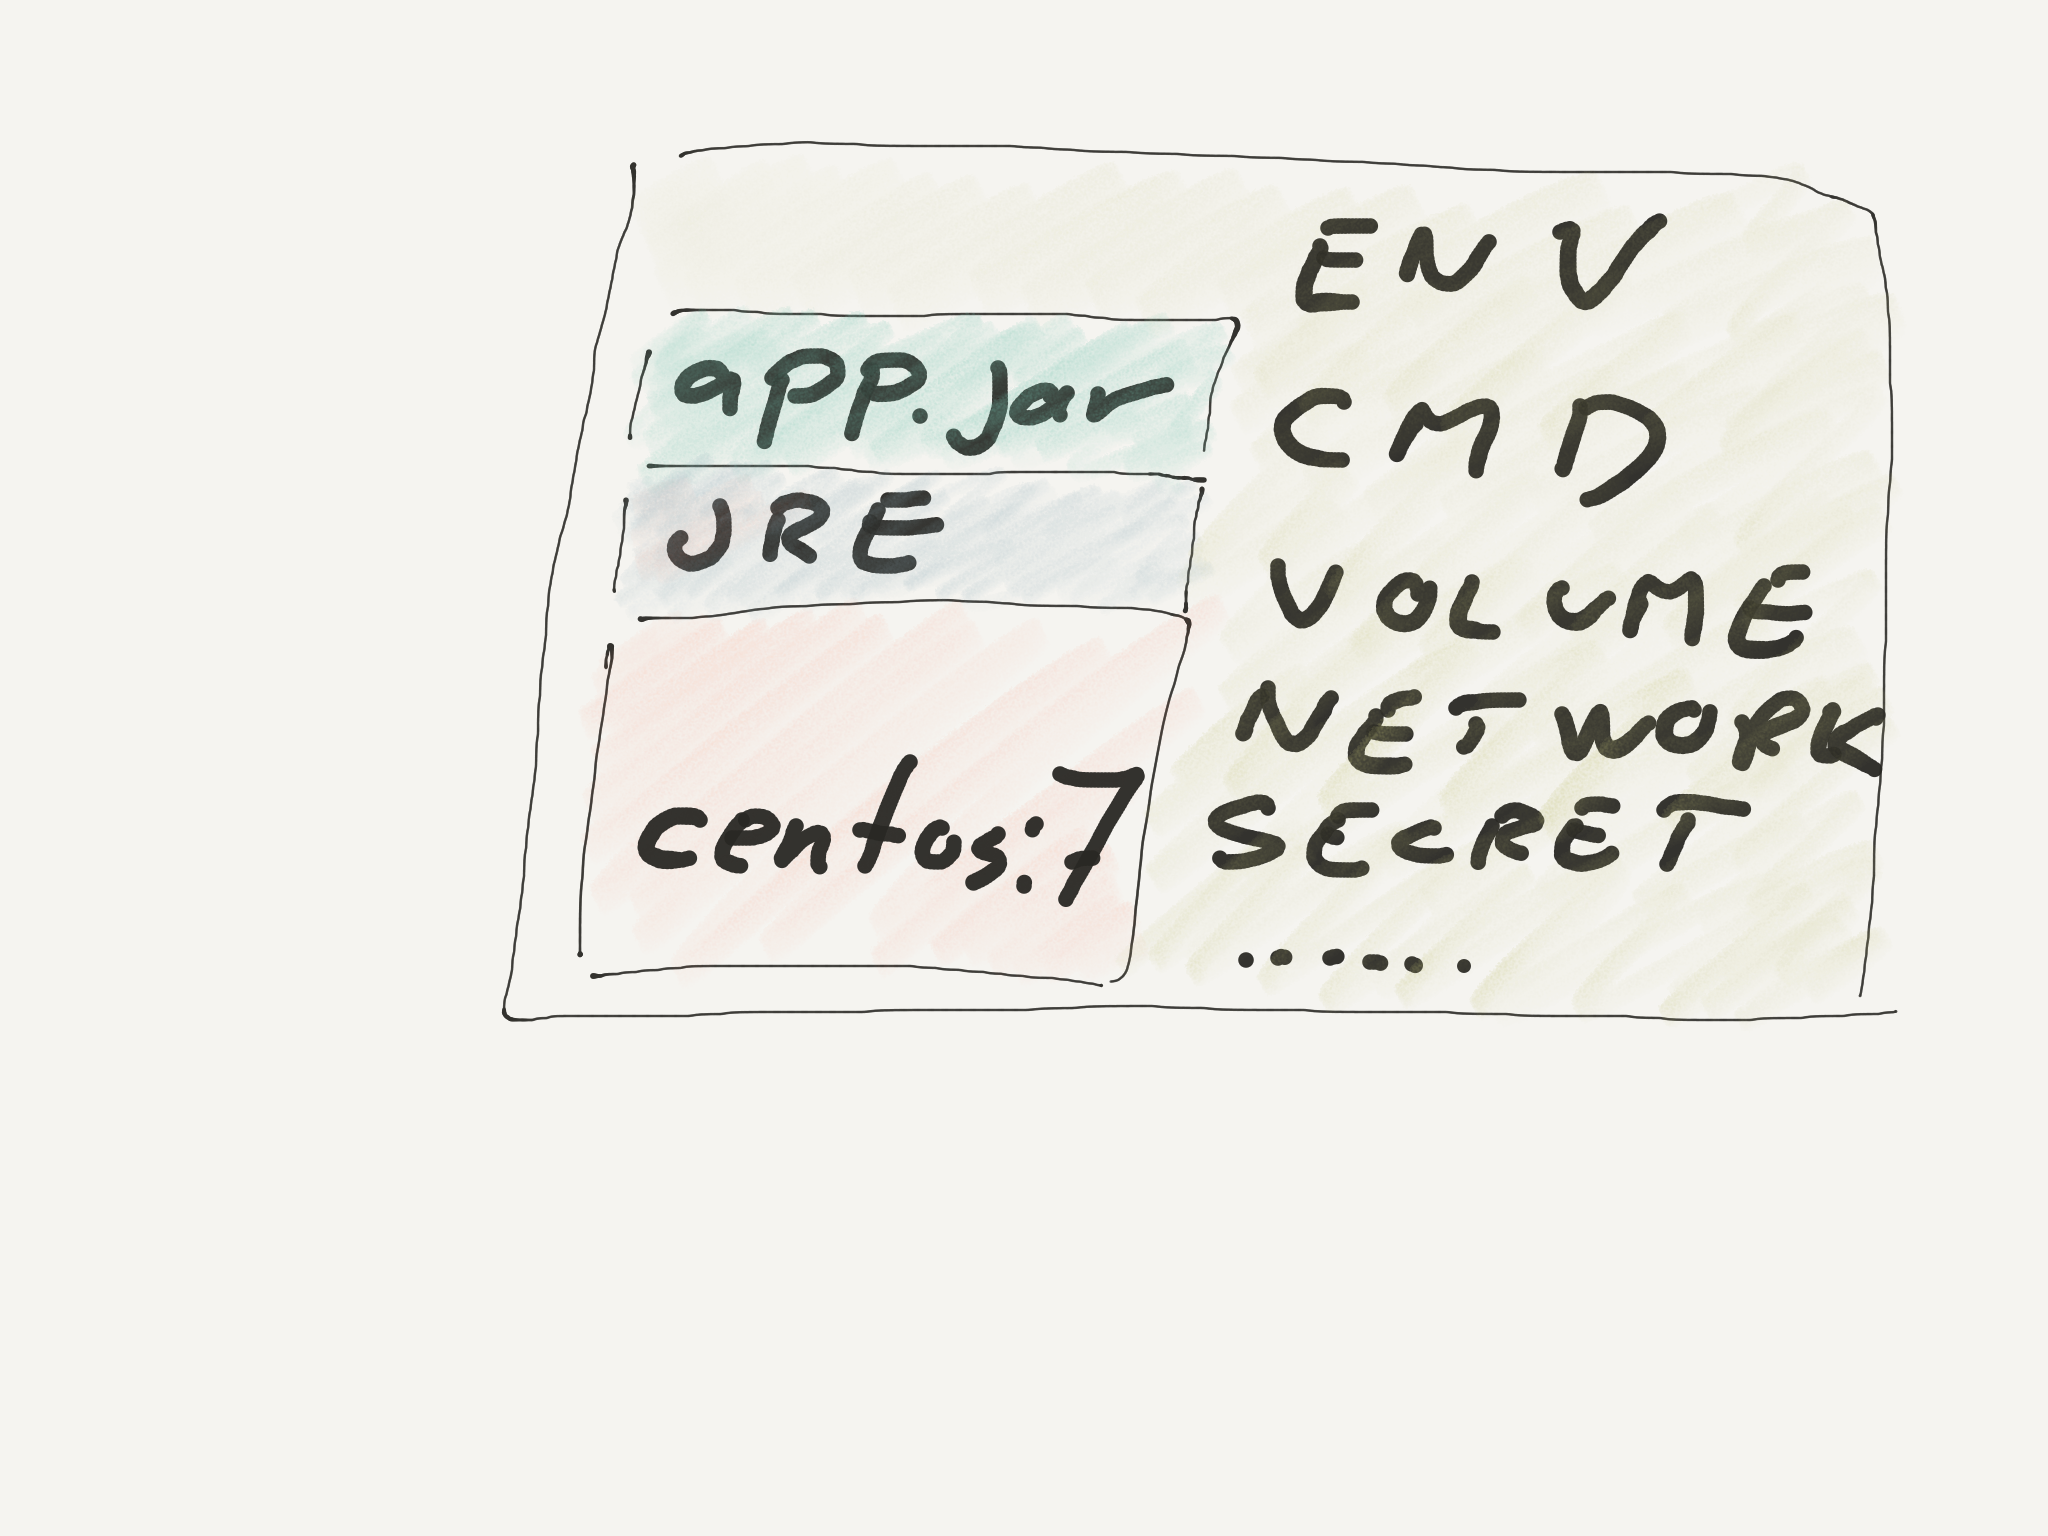 app.jar
JRE
centos:7
ENV
CMD
VOLUME
NETWORK
SECRET
......